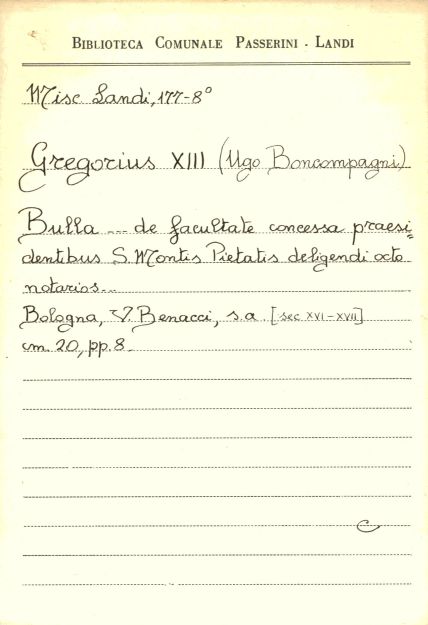 BIBLIOTECA COMUNALE PASSERINI - LANDI
Misc Landi, 177-8°
Gregorius XIII (Ugo Boncompagni)
Bulla ... de facultate concessa praesi=
dentibus S. Montis Pietatis deligendi octo
notarios...
Bologna, V. Benacci, s.a. [sec XVI-XVII]
cm. 20, pp. 8.
C